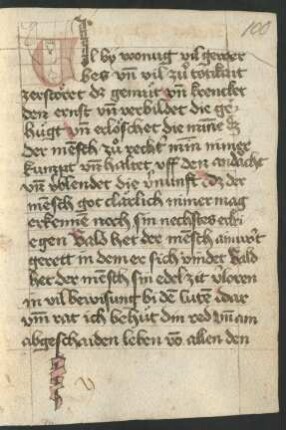 100
Vil by wonug vil gewer
bes vn̄ vil zů torikait
zerstöret dz gemüt vn̄ krencket
den ernst vn̄ verbildet die ge
hügt vn̄ erlöschet die mīne dz
der mēsch zů recht mīn nimer
kumpt vn̄ haltet vff den andacht
vn̄ vblendet die vnunft dz der
mēsch got clarlich nimer mag
erkenē noch sin nechstes
egen Bald het der mēsch antwrt
gerett in dem er sich vindet Bald
het der mēsch sin edel zit vloren
in vil bewisung bi dē lutē dar
vm̄ rat ich behüt din red vn̄ am
abgeschaiden leben vō allen den